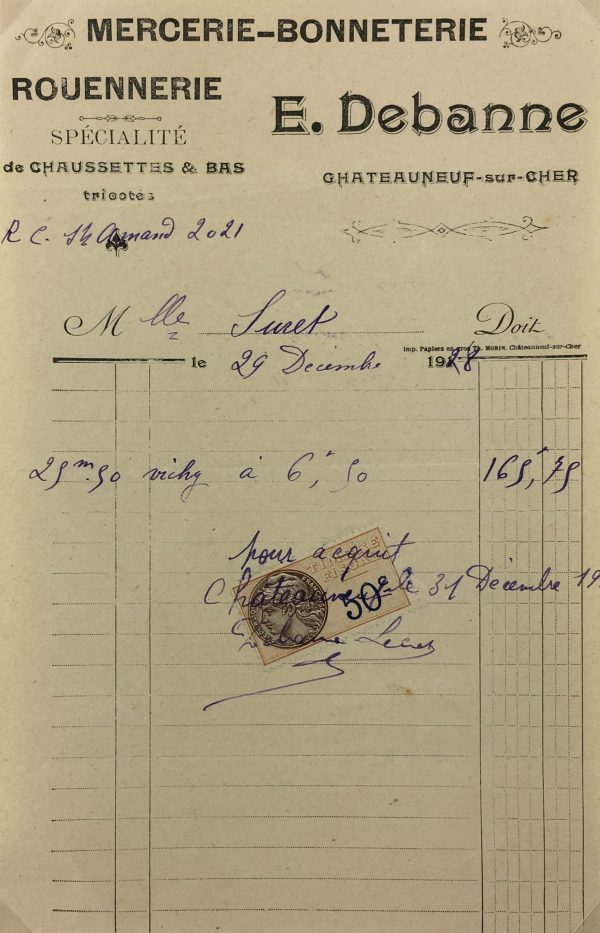 MERCERIE-BONNETERIE
ROUENNERIE
SPÉCIALITÉ
de CHAUSSETTES & BAS
tricotés
E. Debanne
CHATEAUNEUF-sur-CHER
R C. St Amand 2021
Mlle Suret Doit
Imp. Papiers en gros Th. MORIN, Châteauneuf-sur-Cher
le 29 Decembre 1928
25m.50 vichy à 6f,50 165f,75
pour acquit
TIMBRE
FISCAL
50c
le 31 Décembre 19